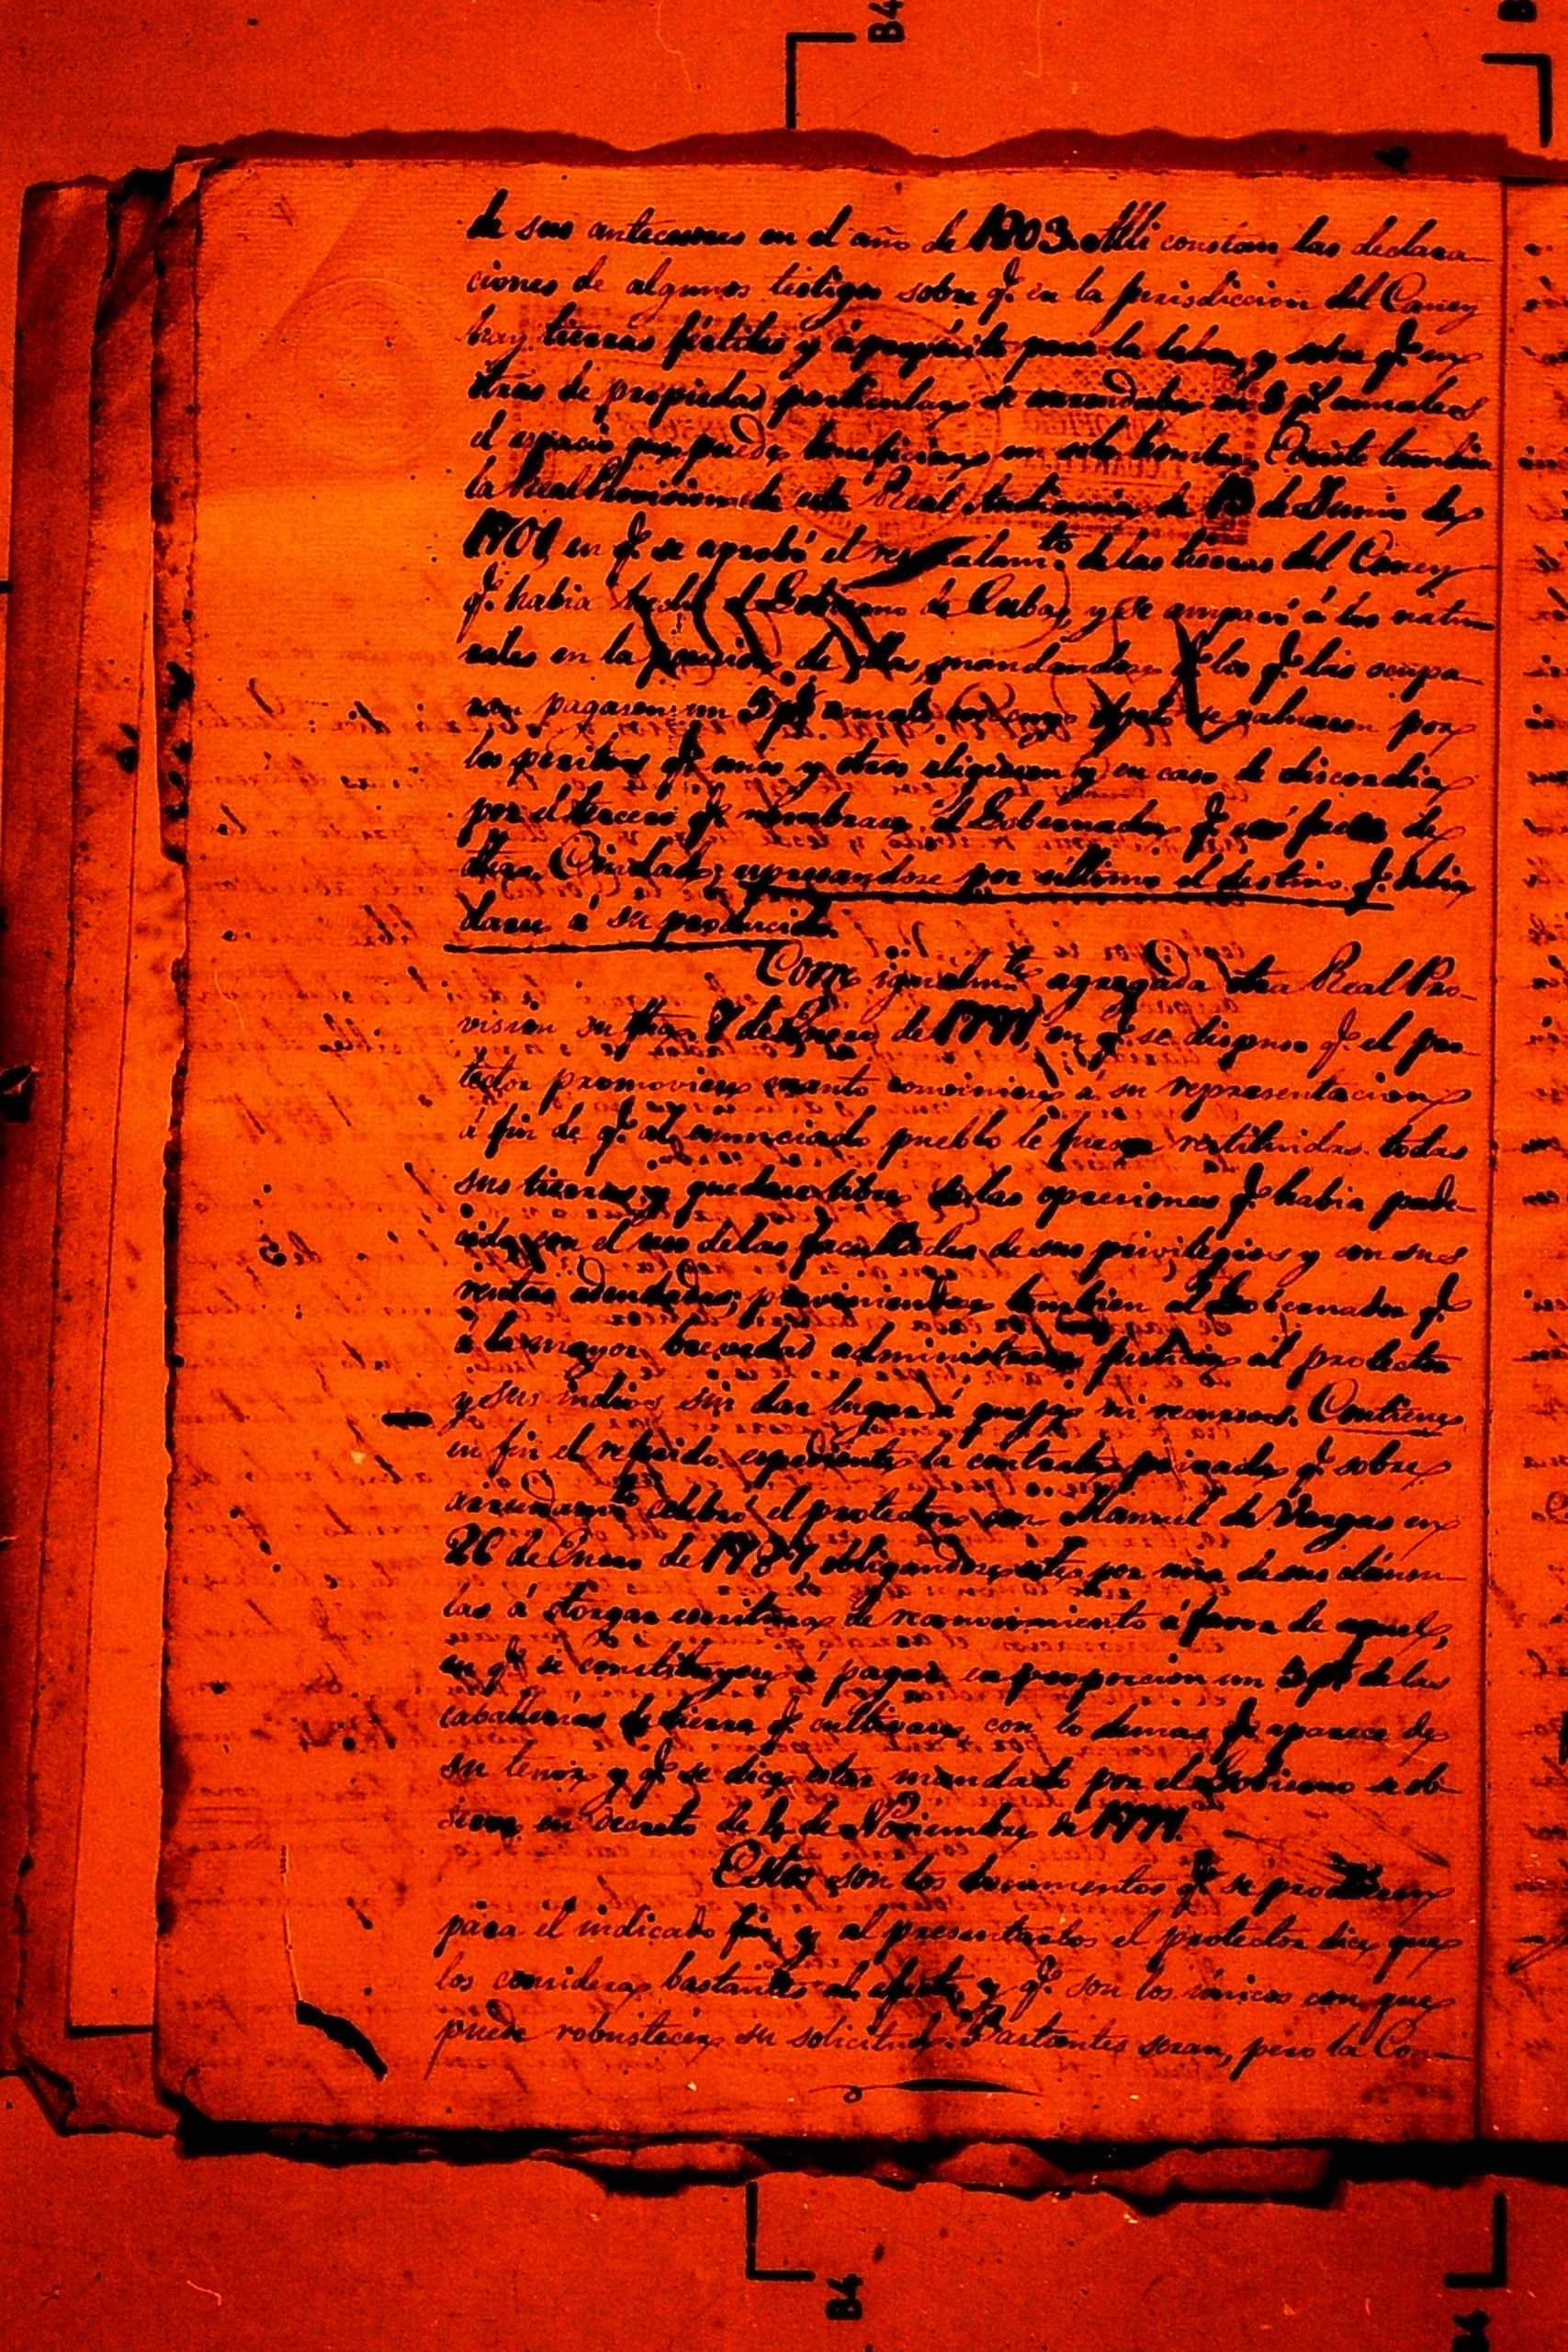 B4
de sus antecesores en el año de 1803. Alli constan las declara
ciones de algunos testigos sobre q.e en la jurisdiccion del Caney
hay tierras fértiles y á propósito para la labor, y sobre q.e en
otras de propiedad particular se arrendaba en 5 p.s anuales
el espacio que puede beneficiar un solo hombre. Existe tambien
la Real Provision de esta Real Audiencia de de Junio de
en q.e se aprobó el de las tierras del Caney
q.e habia hecho el Gobierno de Cuba, y se amparó á los natu
rales en la posesion de ellas, mandandose á los q.e las ocupa
ran pagasen un 5 p% se valuasen por
los peritos q.e unos y otros eligiesen y en caso de discordia
por el tercero q.e nombrara el Gobernador q.e fuera de
dicha Ciudad; espresandose por último el destino q.e debia
darse á su producido.
Corre igualm.te agregada otra Real Pro-
vision su fha. 8 de Enero de en q.e se dispuso q.e el pro
tector promoviera cuanto conviniera á su representacion
á fin de q.e al enunciado pueblo le fuesen restituidas todas
sus tierras y quedara libre de las opresiones q.e habia pade-
cido, con el uso de las facultades de sus privilegios y con sus
rentas adeudadas; previniendose tambien al Gobernador q.e
á la mayor brevedad administrara justicia al protector
y sus indios sin dar lugar á quejas ni recursos. Contiene
en fin el referido espediente la contrata privada q.e sobre
arrendam.to celebró el protector con Manuel de Vargas en
26 de Enero de obligandose este por una de sus cláusu
las á otorgar escritura de reconocimiento á favor de aquel,
en q.e se constituyera á pagar en proporcion un 5 p% de las
caballerías de tierra q.e cultivara, con lo demas q.e aparece de
su tenor y q.e se dice estar mandado por el Gobierno se ob-
serve en decreto de de Noviembre de
Estos son los documentos q.e se producen
para el indicado fin, y al presentarlos el protector dice que
los considera bastantes al efecto, y q.e son los únicos con que
puede robustecer su solicitud. Bastantes seran, pero la Con-
B4